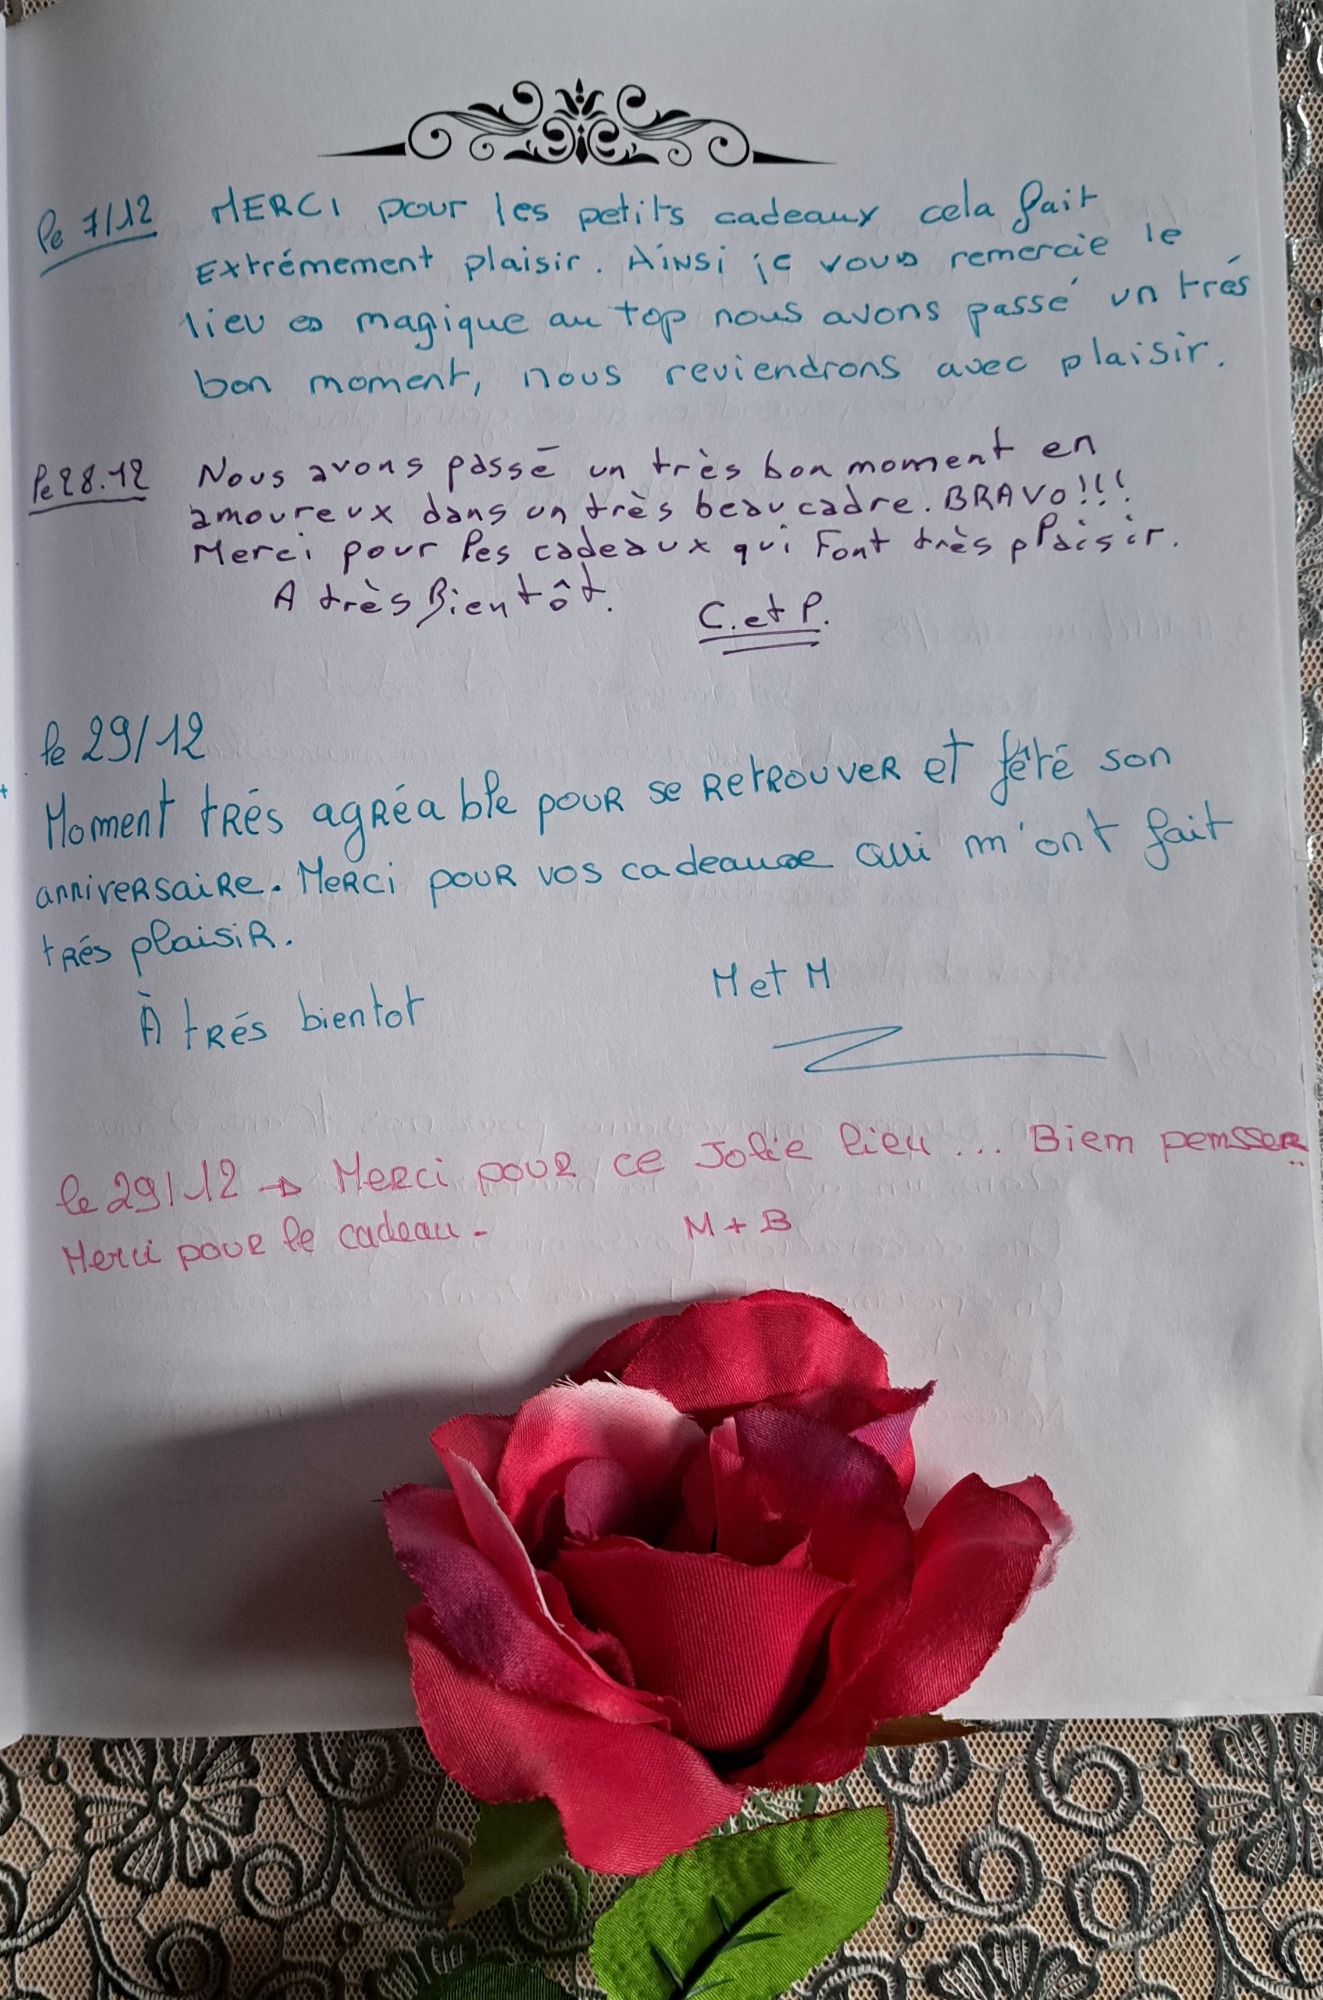 le 7/12 MERCI pour les petits cadeaux cela fait
Extrémement plaisir. Ainsi je vous remercie le
lieu magique au top nous avons passé un trés
bon moment, nous reviendrons avec plaisir.
le 28.12 Nous avons passé un très bon moment en
amoureux dans un très beau cadre. BRAVO!!!
Merci pour les cadeaux qui Font très plaisir.
A très Bientôt. C. et P.
le 29/12
Moment trés agréable pour se retrouver et fété son
anniversaire. Merci pour vos cadeaux qui m'ont fait
trés plaisir.
À trés bientot M et M
le 29/12 → Merci pour ce Jolie lieu ... Biem pemsser
Merci pour le cadeau - M + B